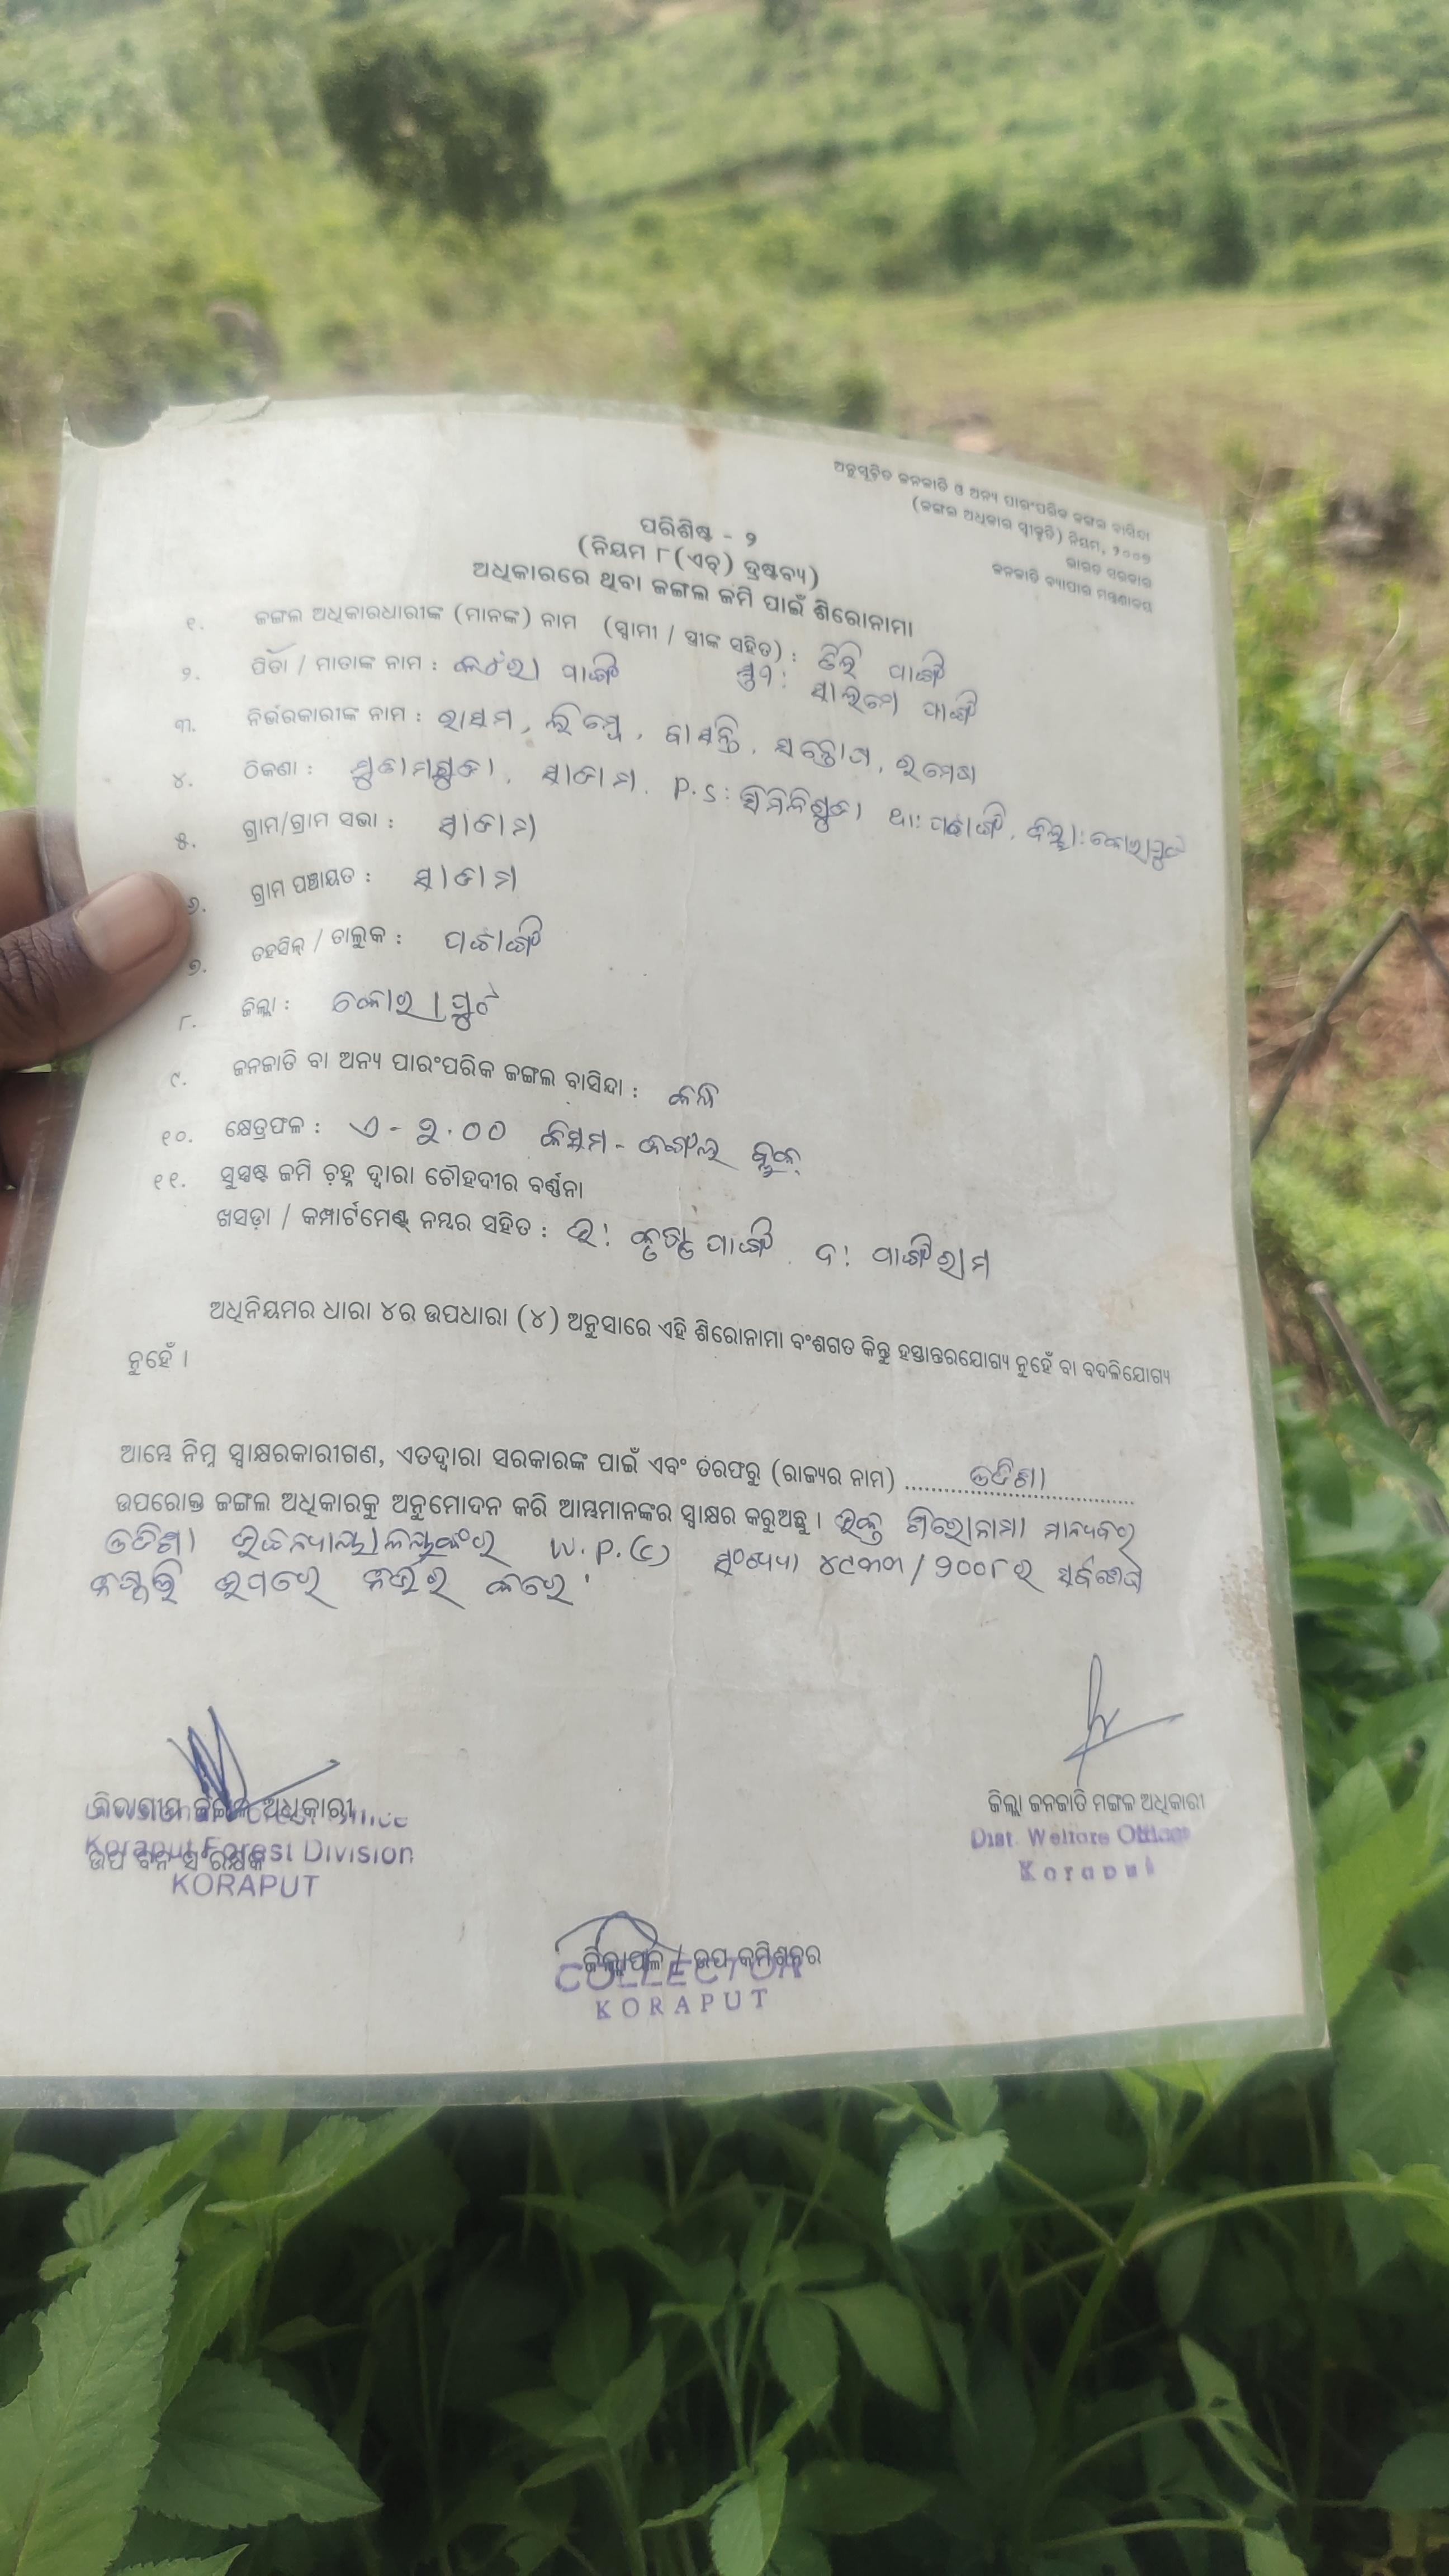 ଅନୁସୂଚିତ ଜନଜାତି ଓ ଅନ୍ୟ ପାରଂପରିକ ଜଙ୍ଗଲ ବାସିନ୍ଦା
(ଜଙ୍ଗଲ ଅଧିକାର ସ୍ୱୀକୃତି) ନିୟମ, ୨୦୦୭
ଭାରତ ସରକାର
ଜନଜାତି ବ୍ୟାପାର ମନ୍ତ୍ରଣାଳୟ
ପରିଶିଷ୍ଟ - ୨
(ନିୟମ ୮(ଏଚ୍) ଦ୍ରଷ୍ଟବ୍ୟ)
ଅଧିକାରରେ ଥିବା ଜଙ୍ଗଲ ଜମି ପାଇଁ ଶିରୋନାମା
୧. ଜଙ୍ଗଲ ଅଧିକାରଧାରୀଙ୍କ (ମାନଙ୍କ) ନାମ (ସ୍ୱାମୀ / ସ୍ତ୍ରୀଙ୍କ ସହିତ) : ପାଙ୍ଗି
୨. ପିତା / ମାତାଙ୍କ ନାମ : ପାଙ୍ଗି ପାଙ୍ଗି
୩. ନିର୍ଭରକାରୀଙ୍କ ନାମ : ବାସନ୍ତି, ରମେଶ
୪. ଠିକଣା : ସାଦାମ, P.S: ସିମିଳିଗୁଡା ଥା: ପଟାଙ୍ଗି, ଜିଲ୍ଲା: କୋରାପୁଟ
୫. ଗ୍ରାମ/ଗ୍ରାମ ସଭା : ସାଦାମ
୬. ଗ୍ରାମ ପଞ୍ଚାୟତ : ସାଦାମ
୭. ତହସିଲ୍ / ତାଲୁକ : ପଟାଙ୍ଗି
୮. ଜିଲ୍ଲା : କୋରାପୁଟ
୯. ଜନଜାତି ବା ଅନ୍ୟ ପାରଂପରିକ ଜଙ୍ଗଲ ବାସିନ୍ଦା :
୧୦. କ୍ଷେତ୍ରଫଳ : ଏ - ୨.୦୦ କିସମ - ଜଙ୍ଗଲ ବ୍ଲକ୍
୧୧. ସୁସ୍ପଷ୍ଟ ଜମି ଚ଼ିହ୍ନ ଦ୍ୱାରା ଚୌହଦୀର ବର୍ଣ୍ଣନା
ଖସଡ଼ା / କମ୍ପାର୍ଟମେଣ୍ଟ ନମ୍ବର ସହିତ : ଉ: ପାଙ୍ଗି ଦ: ପାଙ୍ଗିରାମ
ଅଧିନିୟମର ଧାରା ୪ର ଉପଧାରା (୪) ଅନୁସାରେ ଏହି ଶିରୋନାମା ବଂଶଗତ କିନ୍ତୁ ହସ୍ତାନ୍ତରଯୋଗ୍ୟ ନୁହେଁ ବା ବଦଳିଯୋଗ୍ୟ
ନୁହେଁ ।
ଆମ୍ଭେ ନିମ୍ନ ସ୍ୱାକ୍ଷରକାରୀଗଣ, ଏତଦ୍ୱାରା ସରକାରଙ୍କ ପାଇଁ ଏବଂ ତରଫରୁ (ରାଜ୍ୟର ନାମ) ........ ଓଡିଶା ........
ଉପରୋକ୍ତ ଜଙ୍ଗଲ ଅଧିକାରକୁ ଅନୁମୋଦନ କରି ଆମ୍ଭମାନଙ୍କର ସ୍ୱାକ୍ଷର କରୁଅଛୁ । ଉକ୍ତ ଶିରୋନାମା ମାନ୍ୟବର
ଓଡିଶା ଉଚ୍ଚନ୍ୟାୟାଳୟଙ୍କର W.P.(C) ସଂଖ୍ୟା ୪୯୩୩/୨୦୦୮ର ସର୍ବଶେଷ
ଉପରେ ନିର୍ଭର କରେ ।
ବିଭାଗୀୟ ଜଙ୍ଗଲ ଅଧିକାରୀ
Koraput Forest Division
ଉପ ବନ ସଂରକ୍ଷକ
KORAPUT
ଜିଲ୍ଲା ଜନଜାତି ମଙ୍ଗଳ ଅଧିକାରୀ
Dist. Welfare Officer
Koraput
ଜିଲ୍ଲାପାଳ / ଉପ କମିଶନର
COLLECTOR
KORAPUT